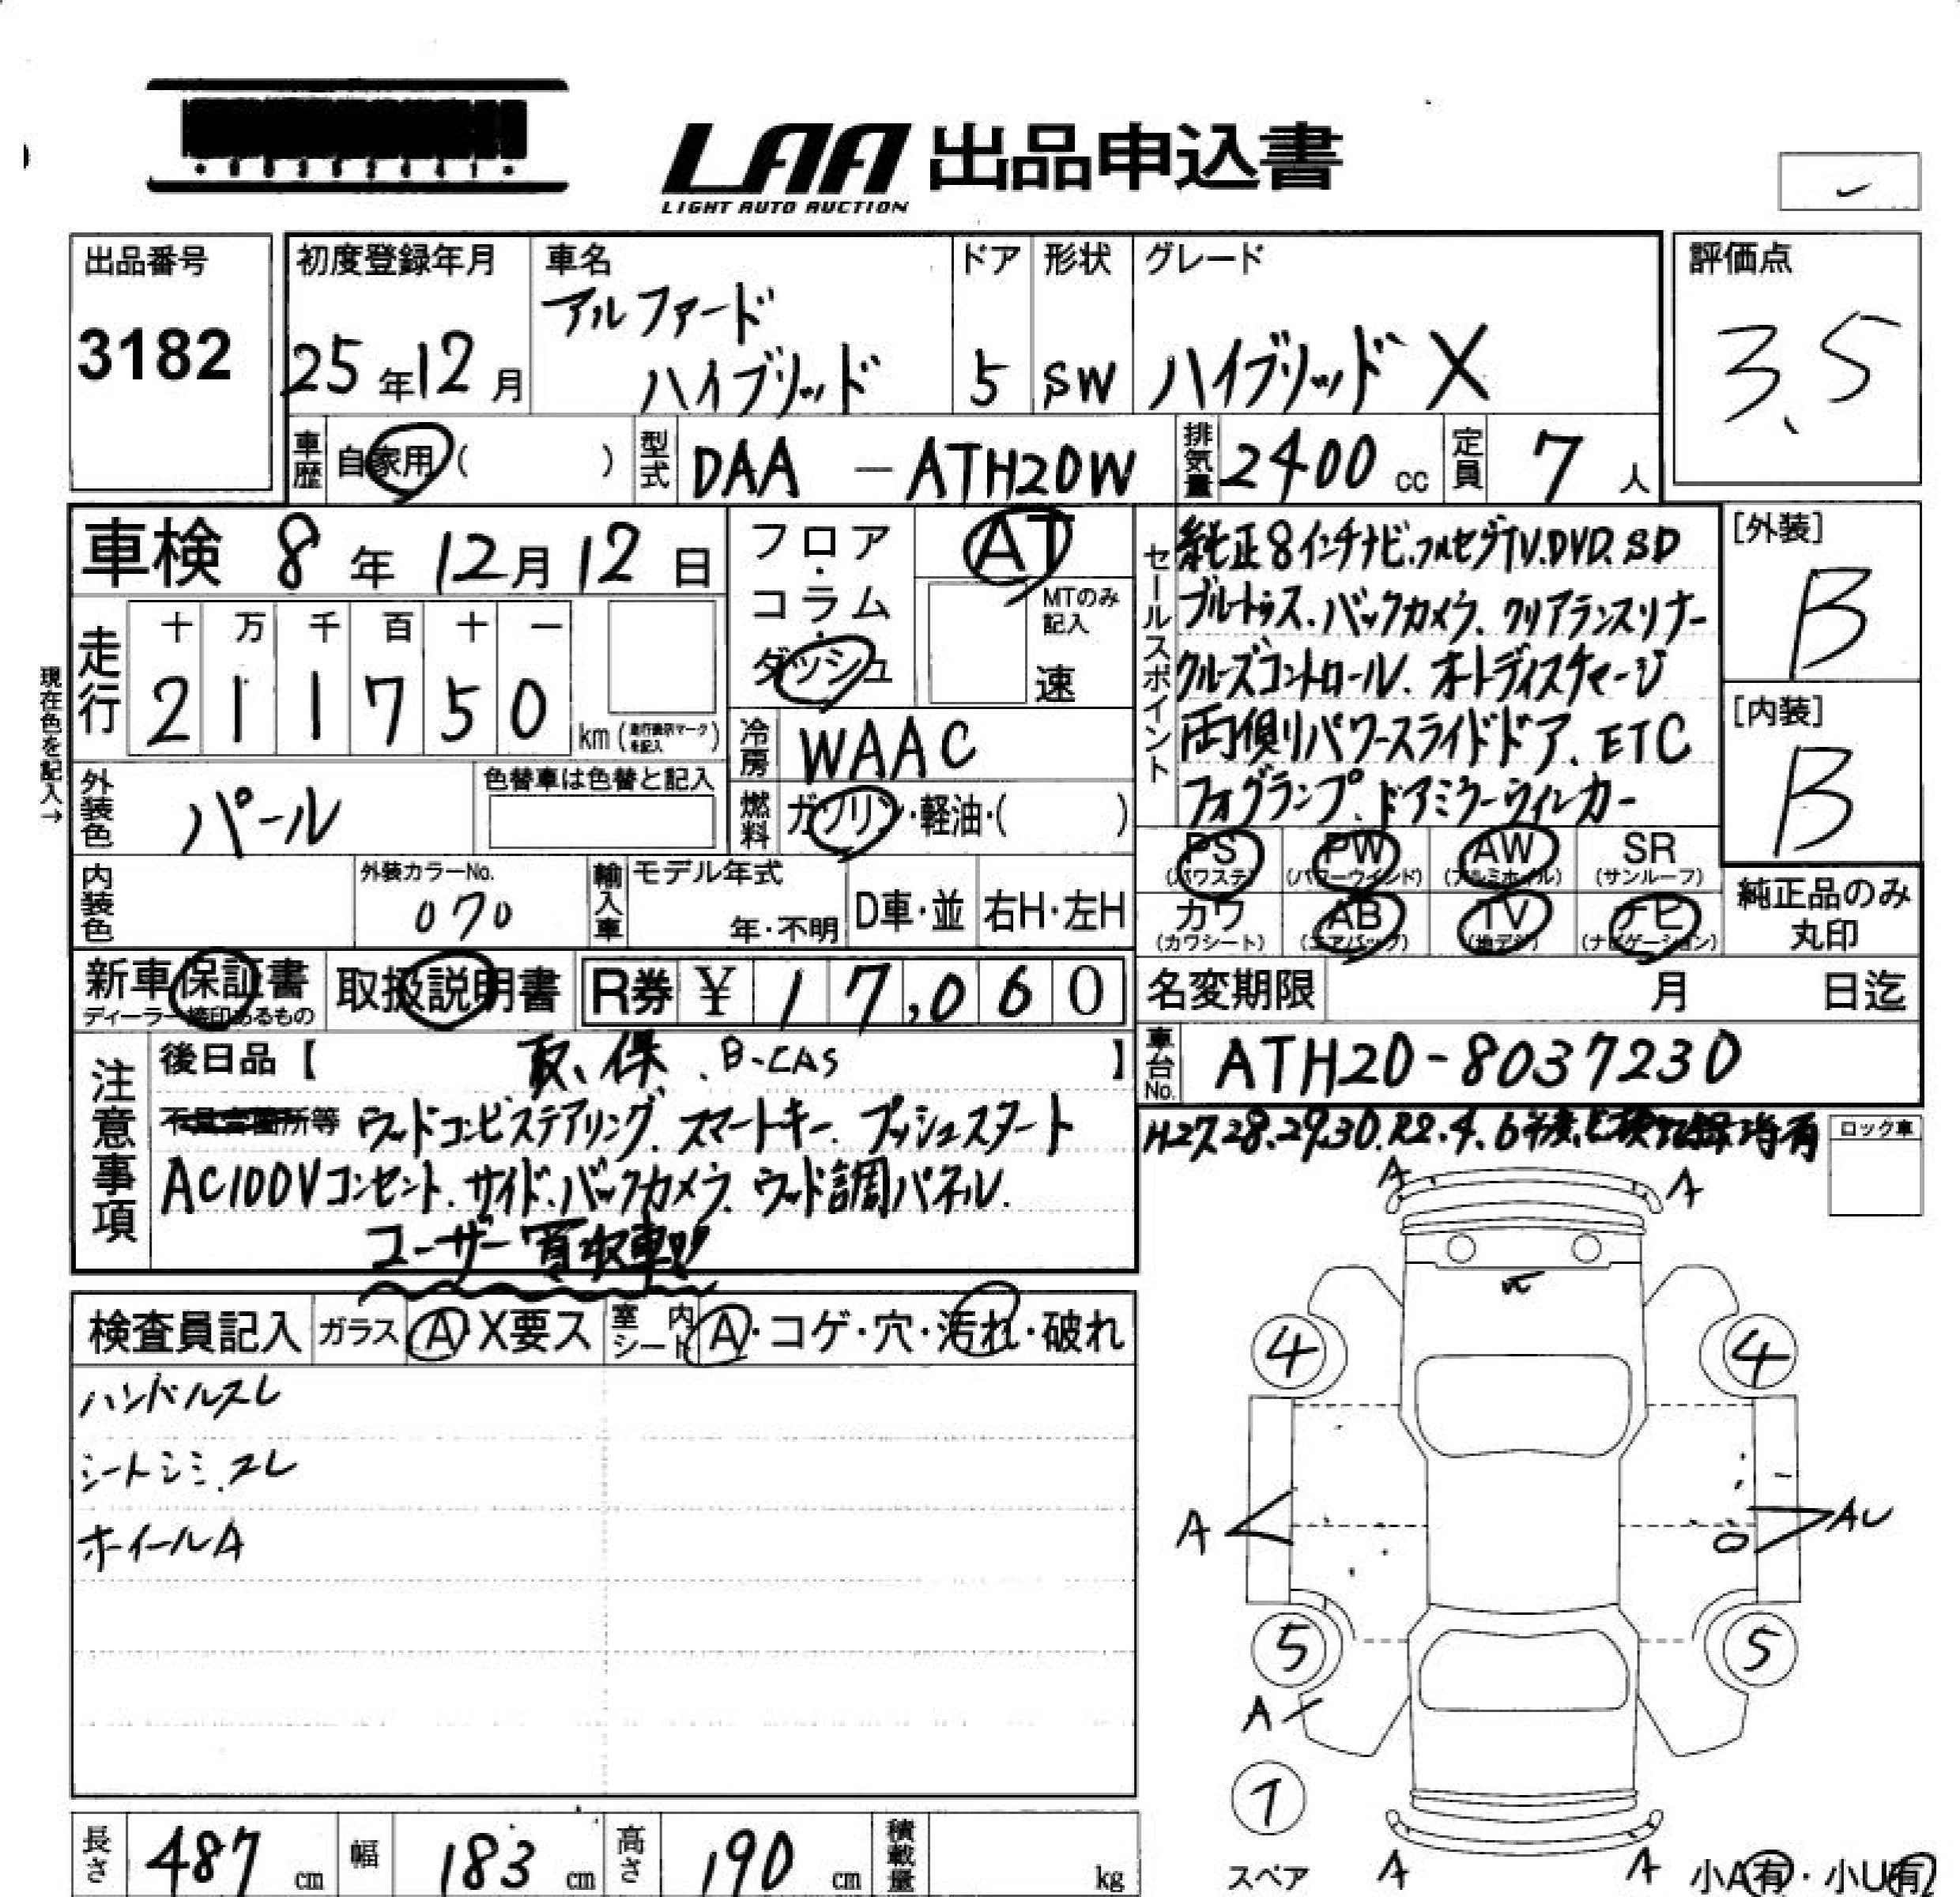 LAA 出品申込書
LIGHT AUTO AUCTION
出品番号
3182
初度登録年月
25年12月
車名
アルファード
ハイブリッド
ドア
5
形状
SW
グレード
ハイブリッド X
評価点
3.5
車歴 自家用( )
型式 DAA-ATH20W
排気量 2400cc
定員 7人
車検 8年12月12日
フロア・コラム・ダッシュ
AT
MTのみ記入
速
現在色を記入→
走行
十 万 千 百 十 一
2 1 1 7 5 0 km
外装色 パール
色替車は色替と記入
冷房 WAAC
燃料 ガソリン・軽油・( )
内装色
外装カラーNo.
070
輸入車
モデル年式
年・不明
D車・並
右H・左H
セールスポイント
純正8インチナビ.フルセグTV.DVD.SD
ブルートゥス.バックカメラ.クリアランスソナー
クルーズコントロール.オートディスチャージ
両側パワースライドドア.ETC
フォグランプ.ドアミラーウインカー
[外装]
B
[内装]
B
PS (パワステ)
PW (パワーウインド)
AW (アルミホイル)
SR (サンルーフ)
カワ (カワシート)
AB (エアバック)
TV (地デジ)
ナビ (ナビゲーション)
純正品のみ丸印
新車保証書
ディーラー捺印あるもの
取扱説明書
R券 ¥ 17,060
名変期限 月 日迄
車台No. ATH20-8037230
注意事項
後日品【 取、保、B-CAS 】
等 ウッドコンビステアリング.スマートキー.プッシュスタート
AC100Vコンセント.サイド.バックカメラ.ウッド調パネル.
ユーザー買取車!!
H27.28.29.30.R2.4.6年度点検記録簿有
ロック車
検査員記入
ガラス A X要ス
室内シート A・コゲ・穴・汚れ・破れ
ハンドルスレ
シートシミ.スレ
ホイールA
A A
4 4
A AU
5 5
A
スペア
A A
小A有・小U有
長さ 487cm
幅 183cm
高さ 190cm
積載量 kg